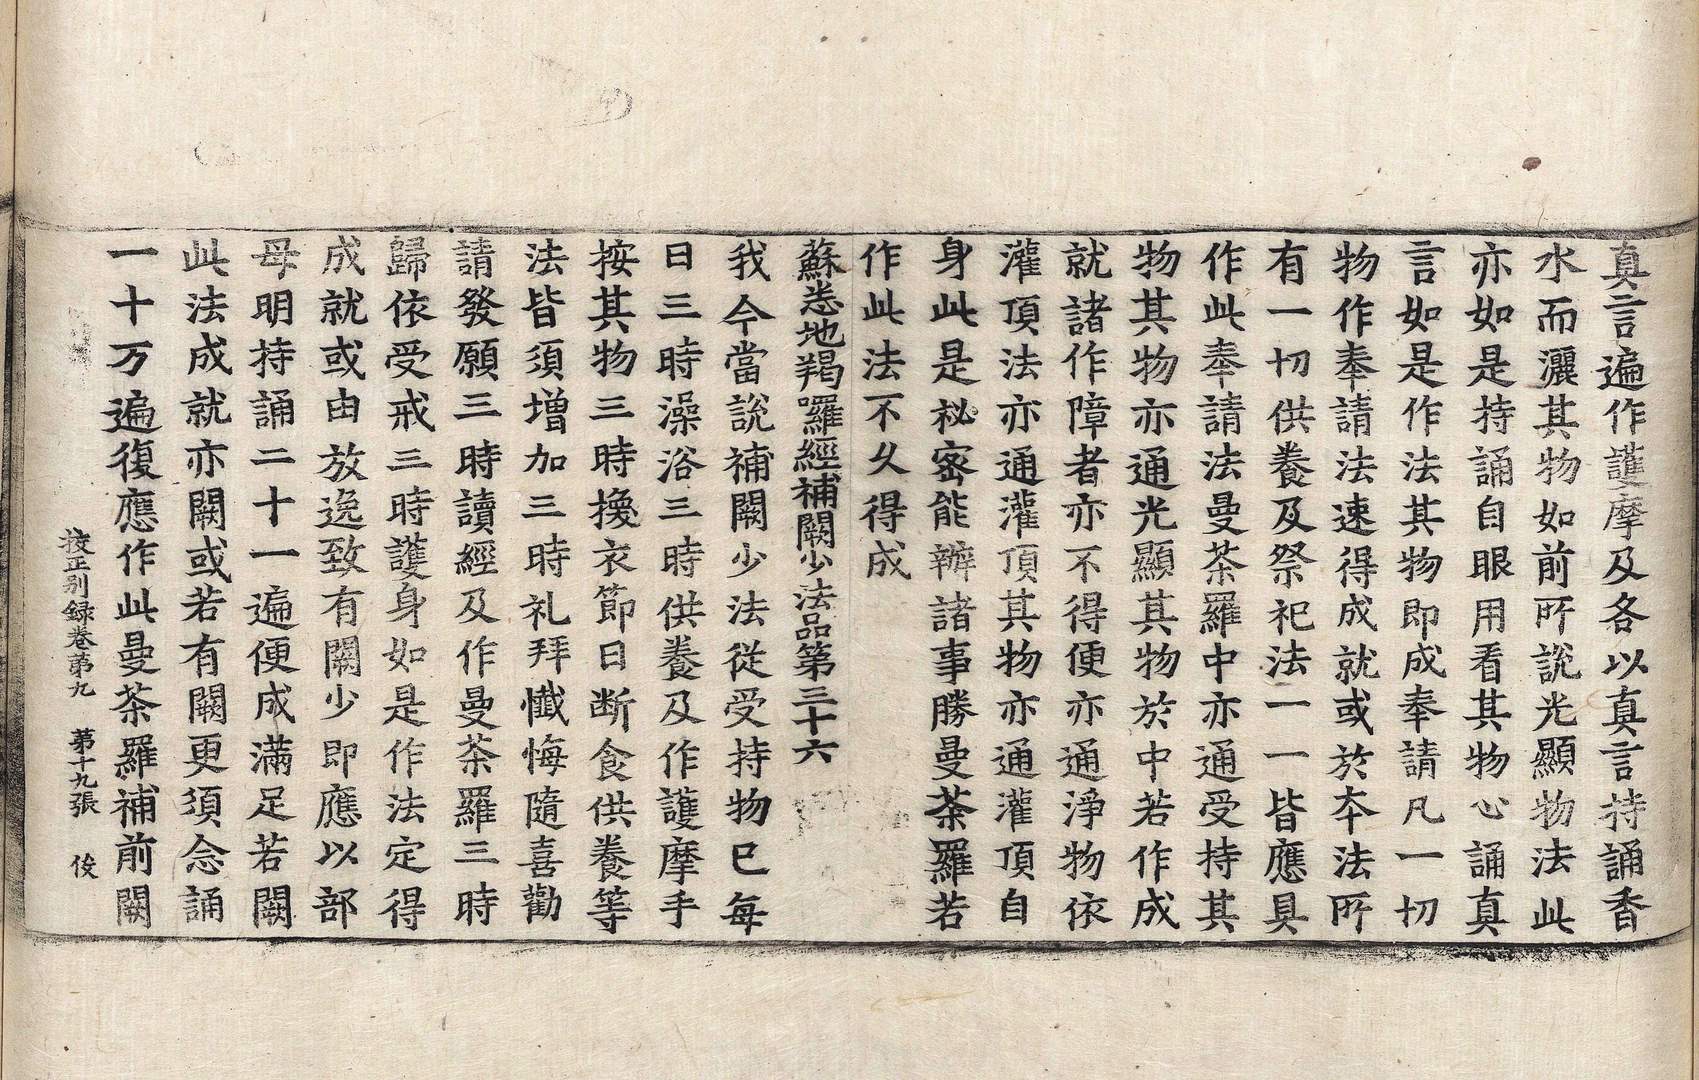 真言遍作護摩及各以真言持誦香
水而灑其物如前所說光顯物法此
亦如是持誦自眼用看其物心誦真
言如是作法其物即成奉請凡一切
物作奉請法速得成就或於本法所
有一切供養及祭祀法一一皆應具
作此奉請法曼茶羅中亦通受持其
物其物亦通光顯其物於中若作成
就諸作障者亦不得便亦通淨物依
灌頂法亦通灌頂其物亦通灌頂自
身此是秘密能辦諸事勝曼茶羅若
作此法不久得成
蘇悉地羯囉經補闕少法品第三十六
我今當說補闕少法從受持物已每
日三時澡浴三時供養及作護摩手
按其物三時換衣節日斷食供養等
法皆須增加三時礼拜懺悔隨喜勸
請發願三時讀經及作曼茶羅三時
歸依受戒三時護身如是作法定得
成就或由放逸致有闕少即應以部
母明持誦二十一遍便成滿足若闕
此法成就亦闕或若有闕更須念誦
一十万遍復應作此曼茶羅補前闕
挍正别録卷第九 第十九張 俊